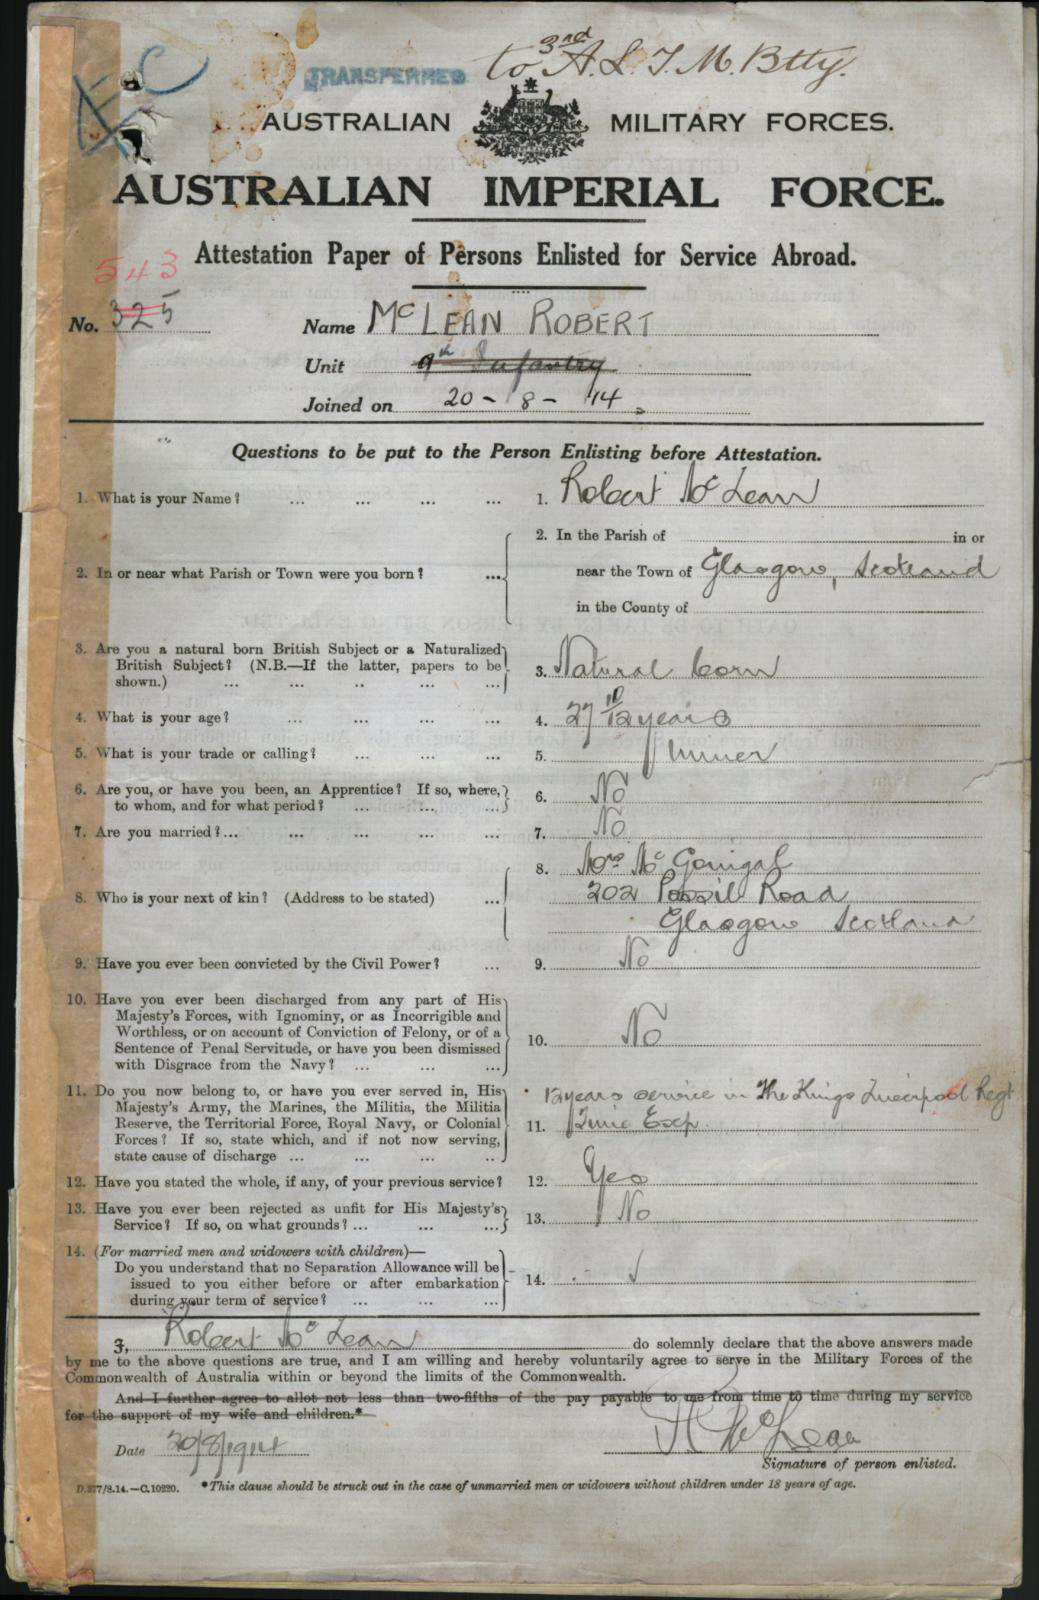 TRANSFERRED to 3rd A. L. T. M. Btty.
AUSTRALIAN MILITARY FORCES.
AUSTRALIAN IMPERIAL FORCE.
Attestation Paper of Persons Enlisted for Service Abroad.
543
No. 325 Name McLEAN ROBERT
Unit 9th Infantry
Joined on 20 - 8 - 14
Questions to be put to the Person Enlisting before Attestation.
1. What is your Name? ... ... ... ... 1. Robert McLean
2. In the Parish of in or
2. In or near what Parish or Town were you born? ... near the Town of Glasgow, Scotland
in the County of
3. Are you a natural born British Subject or a Naturalized
British Subject? (N.B.—If the latter, papers to be 3. Natural born
shown.) ... ... .. ... ...
4. What is your age? ... ... ... ... 4. 27 10/12 years
5. What is your trade or calling? ... ... ... 5. Miner
6. Are you, or have you been, an Apprentice? If so, where, 6. No
to whom, and for what period? ... ... ...
7. Are you married?... ... ... ... 7. No
8. Mrs McGonigal
8. Who is your next of kin? (Address to be stated) ... 202 Possil Road
Glasgow Scotland
9. Have you ever been convicted by the Civil Power? ... 9. No
10. Have you ever been discharged from any part of His
Majesty's Forces, with Ignominy, or as Incorrigible and
Worthless, or on account of Conviction of Felony, or of a 10. No
Sentence of Penal Servitude, or have you been dismissed
with Disgrace from the Navy? ... ... ...
11. Do you now belong to, or have you ever served in, His 12 years service in The Kings Liverpool Regt
Majesty's Army, the Marines, the Militia, the Militia
Reserve, the Territorial Force, Royal Navy, or Colonial 11. Time Exp.
Forces? If so, state which, and if not now serving,
state cause of discharge ... ... ... ..
12. Have you stated the whole, if any, of your previous service? 12. Yes
13. Have you ever been rejected as unfit for His Majesty's 13. No
Service? If so, on what grounds? ... ... ...
14. (For married men and widowers with children)—
Do you understand that no Separation Allowance will be
issued to you either before or after embarkation 14.
during your term of service? ... ... ...
I, Robert McLean do solemnly declare that the above answers made
by me to the above questions are true, and I am willing and hereby voluntarily agree to serve in the Military Forces of the
Commonwealth of Australia within or beyond the limits of the Commonwealth.
And I further agree to allot not less than two-fifths of the pay payable to me from time to time during my service
for the support of my wife and children.*
Date 20/8/1914 R McLean
Signature of person enlisted.
D.277/8.14.—C.10220. *This clause should be struck out in the case of unmarried men or widowers without children under 18 years of age.